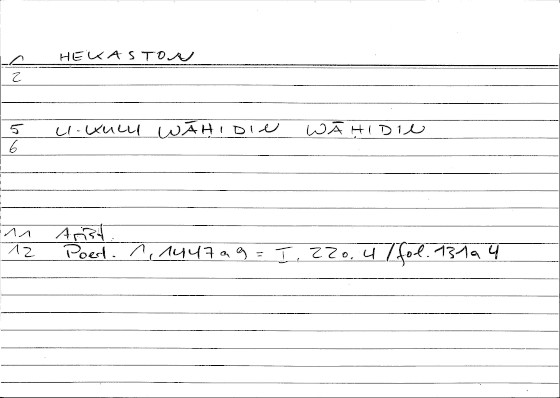 1 HEKASTON
2
5 LI-KULLI WĀḤIDIN WĀḤIDIN
6
11 Arist.
12 Poet. 1, 1447a9 = I, 220.4 / fol. 131a4